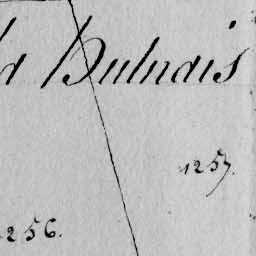 d Buludis
1257.
256.